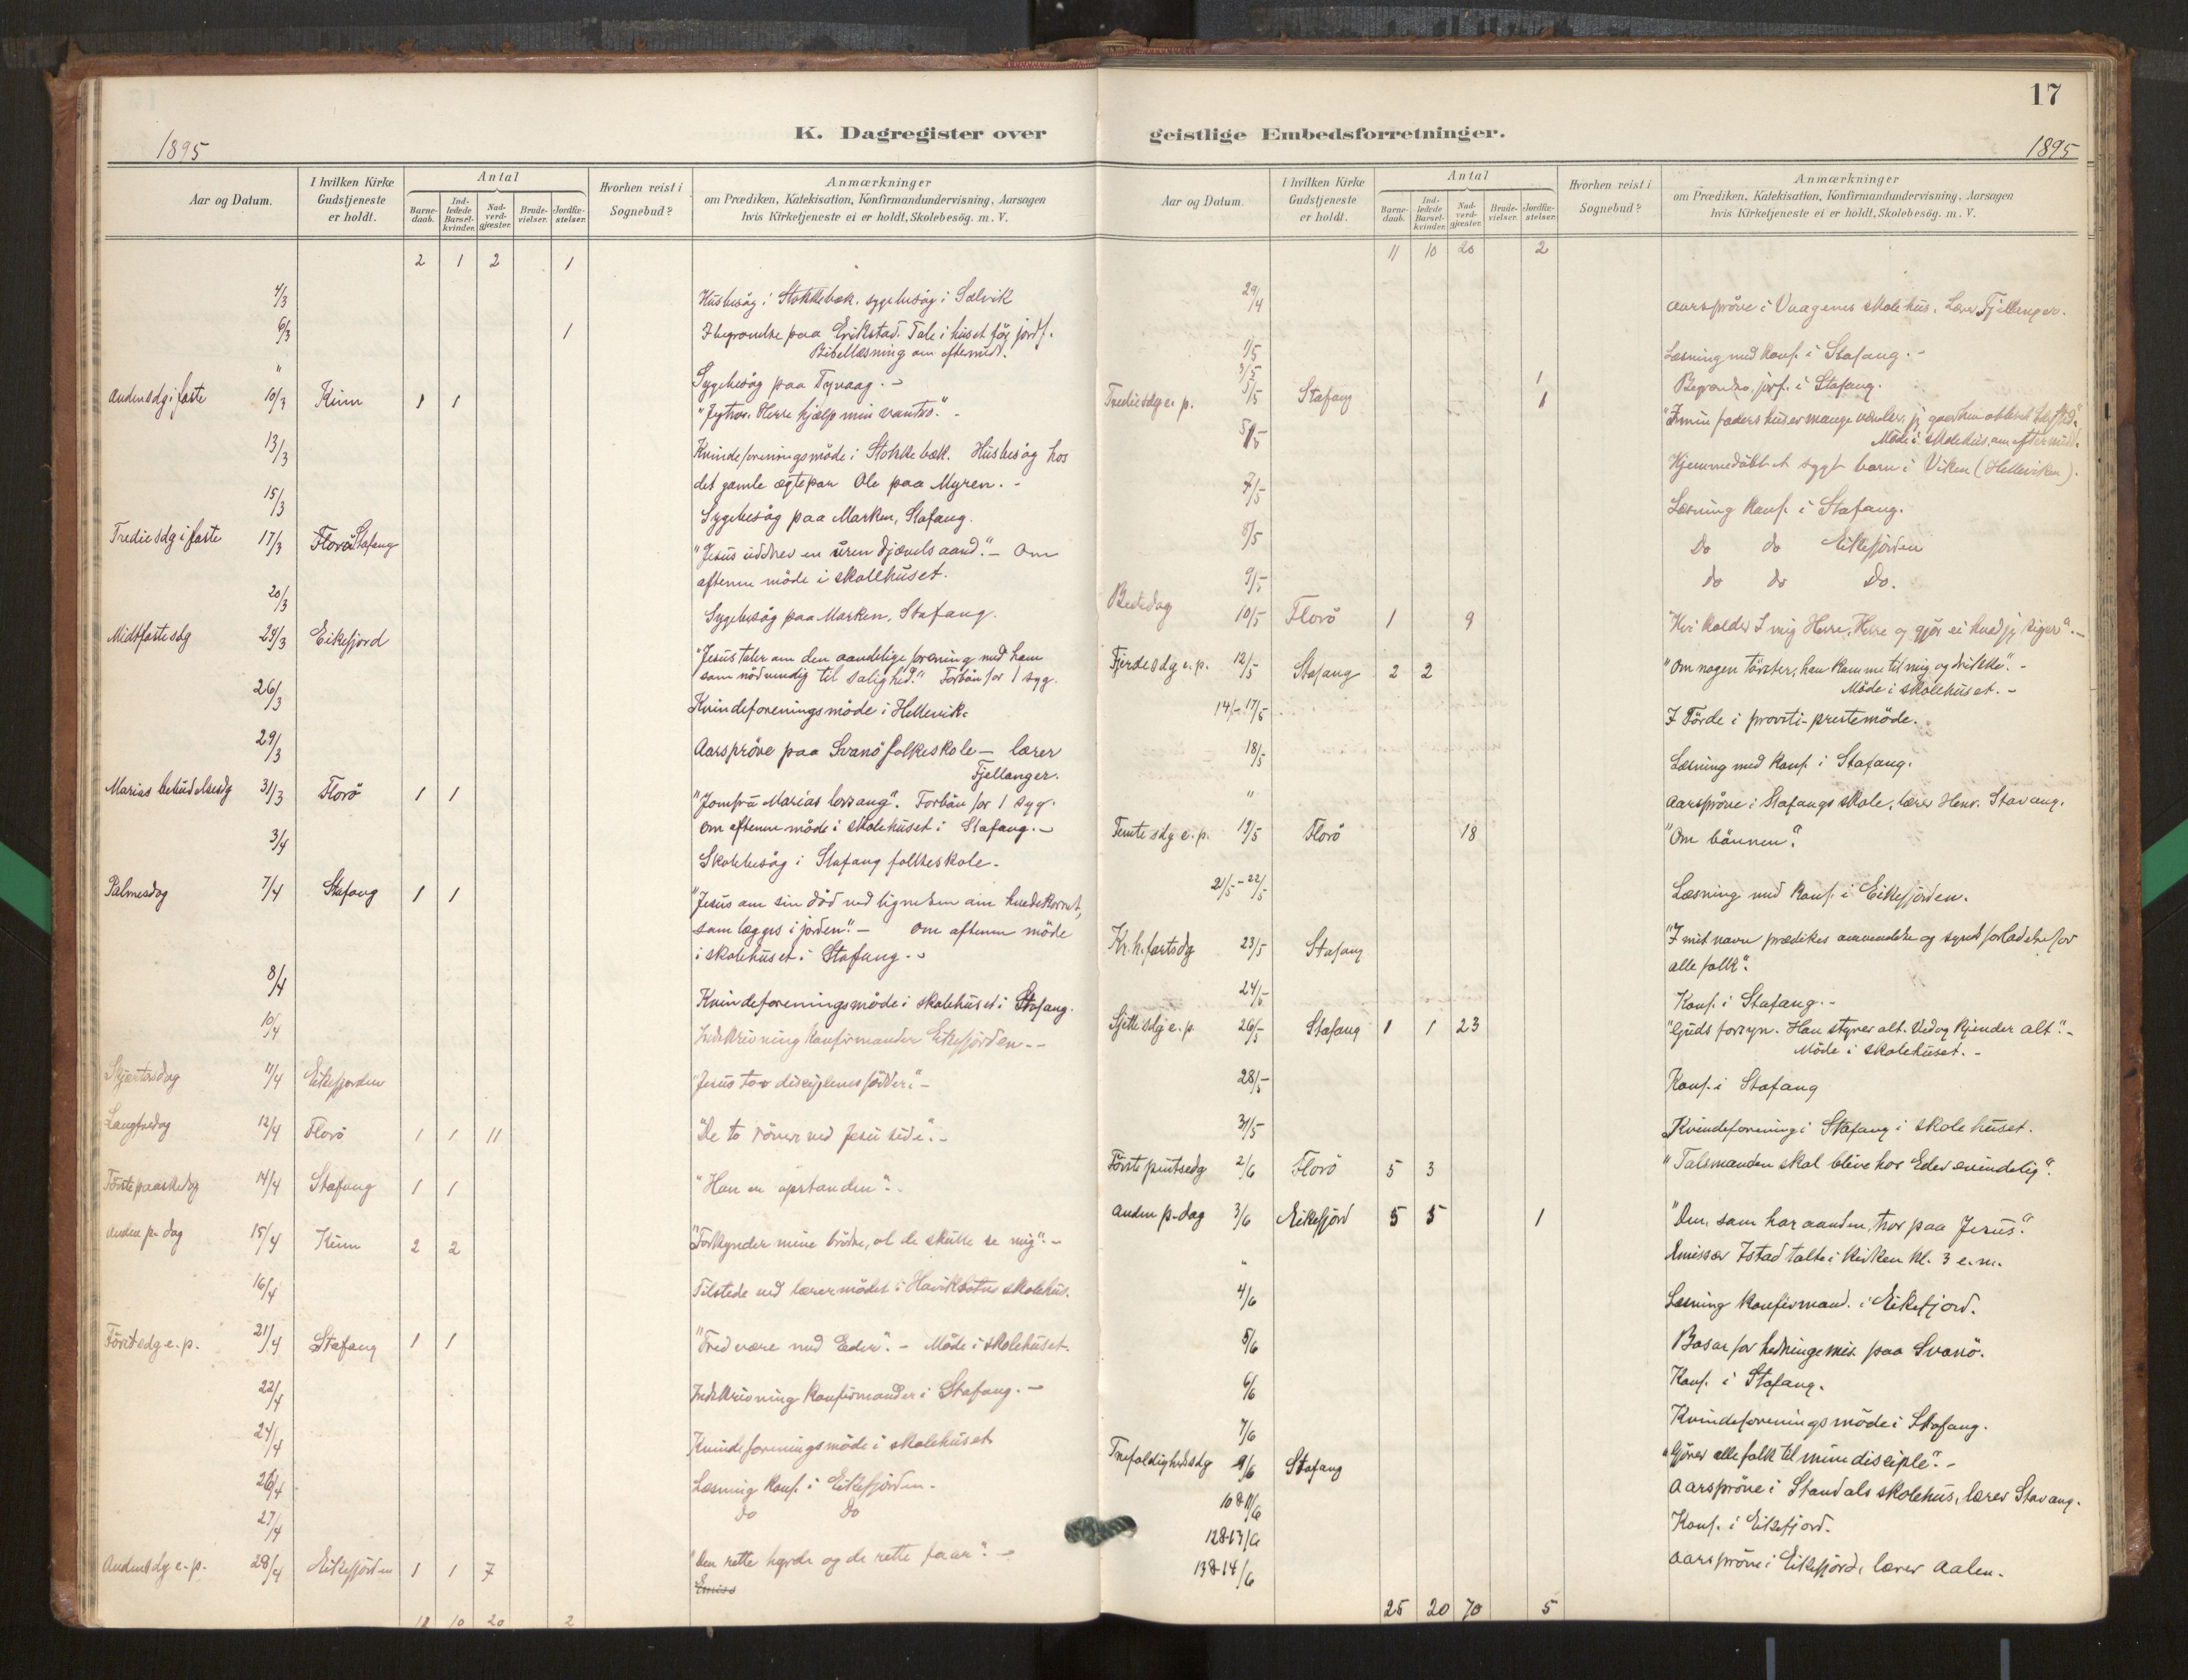 17
K. Dagregister over
geistlige Embedsforretninger.
1895
1895
Aar og Datum.
I hvilken Kirke Gudstjeneste er holdt.
Antal
Barne-daab.
Ind-ledede Barsel-kvinder.
Nad-verd-gjæster.
Brude-vielser.
Jordfæ-stelser.
Hvorhen reist i Sognebud?
Anmærkninger
om Prædiken, Katekisation, Konfirmandundervisning, Aarsagen
hvis Kirketjeneste ei er holdt, Skolebesög. m. V.
2 1 2 1
4/3 Husbesög i Stokkebæk. sygebesög i Sælvik
6/3 1 I begravelse paa Erikstad. Tale i huset för jordf.
Bibellæsning om eftermidd.
" Sygebesög paa Tyvaag. -
Anden sdg i faste 10/3 Kinn 1 1 "Jeg tror. Herre hjælp min vantro." -
13/3 Kvindeforeningsmöde i Stokkebæk. Husbesög hos
det gamle ægtepar Ole paa Myren. -
15/3 Sygebesög paa Marken, Stafang.
Tredie sdg i faste 17/3 Florö Stafang "Jesus uddrev en uren djævels aand." - Om
aftenen möde i skolehuset.
20/3 Sygebesög paa Marken, Stafang.
Midtfastesdg 24/3 Eikefjord "Jesus taler om den aandelige forening med ham
som nödvendig til salighed." Forbön for 1 syg.
26/3 Kvindeforeningsmöde i Hellevik.
29/3 Aarspröve paa Svanö folkeskole - lærer
Fjellanger.
Marias budskabsdg 31/3 Florö 1 1 "Jomfru Marias lovsang". Forbön for 1 syg.
Om aftenen möde i skolehuset i Stafang. -
3/4 Skolebesög i Stafang folkeskole.
Palmesdag 7/4 Stafang 1 1 "Jesus om sin död ved lignelsen om hvedekornet,
som lægges i jorden." - Om aftenen möde
i skolehuset i Stafang. -
8/4 Kvindeforeningsmöde i skolehuset i Stafang.
10/4 Indskrivning konfirmander Eikefjorden. -
Skjærtorsdag 11/4 Eikefjorden "Jesus tor disciplenes födder." -
Langfredag 12/4 Florö 1 1 11 "De to rövere ved Jesu side". -
Förste paaskedag 14/4 Stafang 1 1 "Han er opstanden". -
Anden p. dag 15/4 Kinn 2 2 "Forkynder mine brödre, at de skulle se mig". -
16/4 Tilstede ved lærermödet i Haviksbotn skolehus.
Förste sdg e. p. 21/4 Stafang 1 1 "Fred være med Eder". - Möde i skolehuset.
22/4 Indskrivning konfirmander i Stafang. -
24/4 Kvindeforeningsmöde i skolehuset
26/4 Læsning konf. i Eikefjorden.
27/4 Do Do
Anden sdg e. p. 28/4 Eikefjorden 1 1 7 "Den rette hyrde og de rette faar". -
Emiss
11 10 20 2
Aar og Datum.
I hvilken Kirke Gudstjeneste er holdt.
Antal
Barne-daab.
Ind-ledede Barsel-kvinder.
Nad-verd-gjæster.
Brude-vielser.
Jordfæ-stelser.
Hvorhen reist i Sognebud?
Anmærkninger
om Prædiken, Katekisation, Konfirmandundervisning, Aarsagen
hvis Kirketjeneste ei er holdt, Skolebesög. m. V.
11 10 20 2
29/4 Aarspröve i Vaagenes skolehus. Lærer Fjellanger.
1/5 Læsning med konf. i Stafang. -
3/5 1 Begravelse. jorf. i Stafang.
Tredie sdg e. p. 5/5 Stafang 1 "I min faders hus er mange værelser, jeg gaar hen at berede Eder sted."
Möde i skolehus. om eftermidd.
5/5 Hjemmedöbt et sygt barn i Viken (Helleviken).
7/5 Læsning konf. i Stafang.
8/5 Do do Eikefjorden
9/5 do do Do.
Bededag 10/5 Florö 1 9 "Hvi kalder I mig Herre, Herre og gjör ei hvad jeg siger". -
Fjerde sdg e. p. 12/5 Stafang 2 2 "Om nogen törster, han komme til mig og drikke". -
Möde i skolehuset. -
14/ - 17/5 I Förde i provsti-prestemöde.
18/5 Læsning med konf. i Stafang.
" Aarspröve i Stafangs skole, lærer Henr. Stavang.
Femte sdg e. p. 19/5 Florö 18 "Om bönnen".
21/5 - 22/5 Læsning med konf. i Eikefjorden.
Kr. h. fartsdg 23/5 Stafang "I mit navn prædikes omvendelse og synds forladelse for
alle folk".
24/5 Konf. i Stafang. -
Sjette sdg e. p. 26/5 Stafang 1 1 23 "Guds forsyn. Han styrer alt. Ved og kjender alt". -
Möde i skolehuset. -
28/5 Konf. i Stafang
31/5 Kvindeforening i Stafang i skolehuset.
Förste pintsedg 2/6 Florö 5 3 "Talsmanden skal blive hos Eder evindelig".
Anden p-dag 3/6 Eikefjord 5 5 1 "Den, som har aanden, tror paa Jesus".
" Emissær Istad talte i kirken kl. 3 e.m.
4/6 Læsning konfirmand. i Eikefjord.
5/6 Basar for hedningemis. paa Svanö.
6/6 Konf. i Stafang.
7/6 Kvindeforeningsmöde i Stafang.
Trefoldighedssdg 9/6 Stafang "Gjörer alle folk til mine disciple". -
10 & 11/6 Aarspröve i Standals skolehus, lærer Stavang.
12 & 13/6 Konf. i Eikefjord.
13 & 14/6 Aarspröve i Eikefjord, lærer Aalen.
25 20 70 5